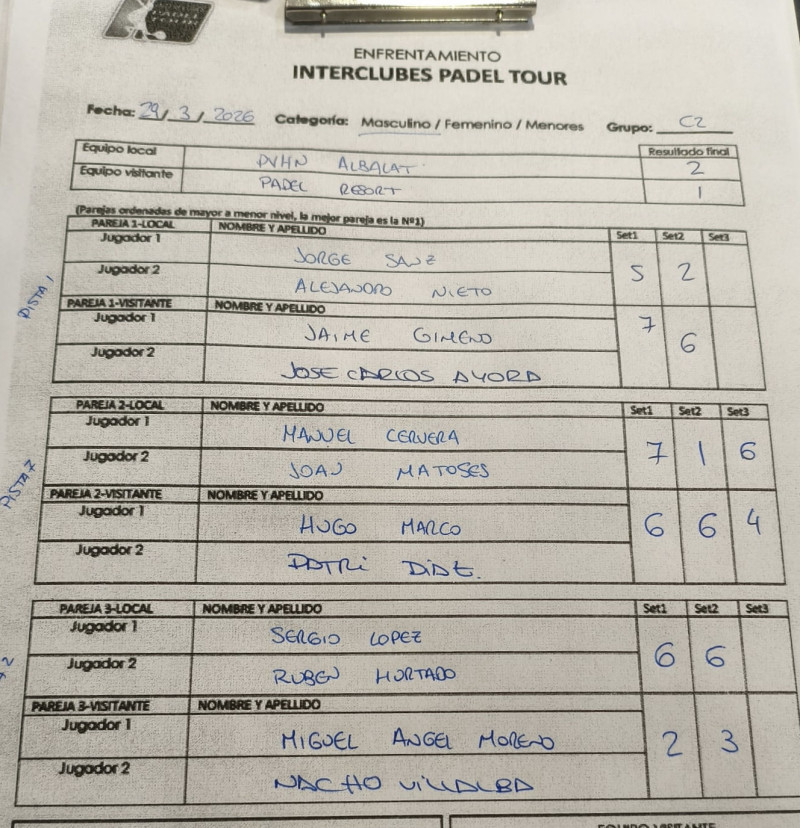 ENFRENTAMIENTO
INTERCLUBES PADEL TOUR
Fecha: 29/3/2026 Categoría: Masculino / Femenino / Menores Grupo: C2
Equipo local PVHN ALBALAT Resultado final 2
Equipo visitante PADEL RESORT 1
(Parejas ordenadas de mayor a menor nivel, la mejor pareja es la Nº1)
PAREJA 1-LOCAL NOMBRE Y APELLIDO Set1 Set2 Set3
Jugador 1 JORGE SANZ
Jugador 2 ALEJANDRO NIETO 5 2
PISTA 1
PAREJA 1-VISITANTE NOMBRE Y APELLIDO
Jugador 1 JAIME GIMENO 7 6
Jugador 2 JOSE CARLOS AYORA
PAREJA 2-LOCAL NOMBRE Y APELLIDO Set1 Set2 Set3
Jugador 1 MANUEL CERVERA 7 1 6
Jugador 2 JOAN MATOSES
PISTA 7
PAREJA 2-VISITANTE NOMBRE Y APELLIDO
Jugador 1 HUGO MARCO 6 6 4
Jugador 2 PATRI
PAREJA 3-LOCAL NOMBRE Y APELLIDO Set1 Set2 Set3
Jugador 1 SERGIO LOPEZ 6 6
Jugador 2 RUBEN HURTADO
PAREJA 3-VISITANTE NOMBRE Y APELLIDO
Jugador 1 MIGUEL ANGEL MORENO 2 3
Jugador 2 NACHO VILLALBA
EQUIPO VISITANTE